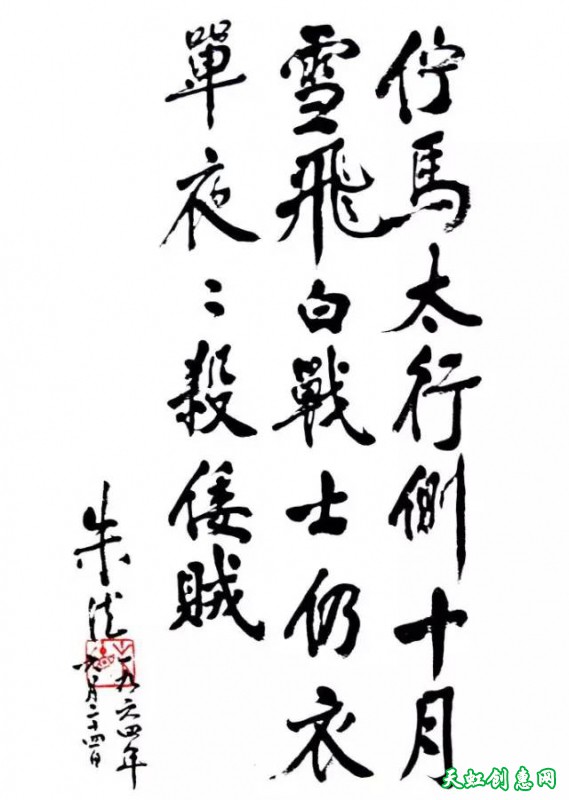 佇馬太行側十月
雪飛白戰士仍衣
單夜〻殺倭賊
朱德
一九六四年
六月二十四日
天虹创惠网